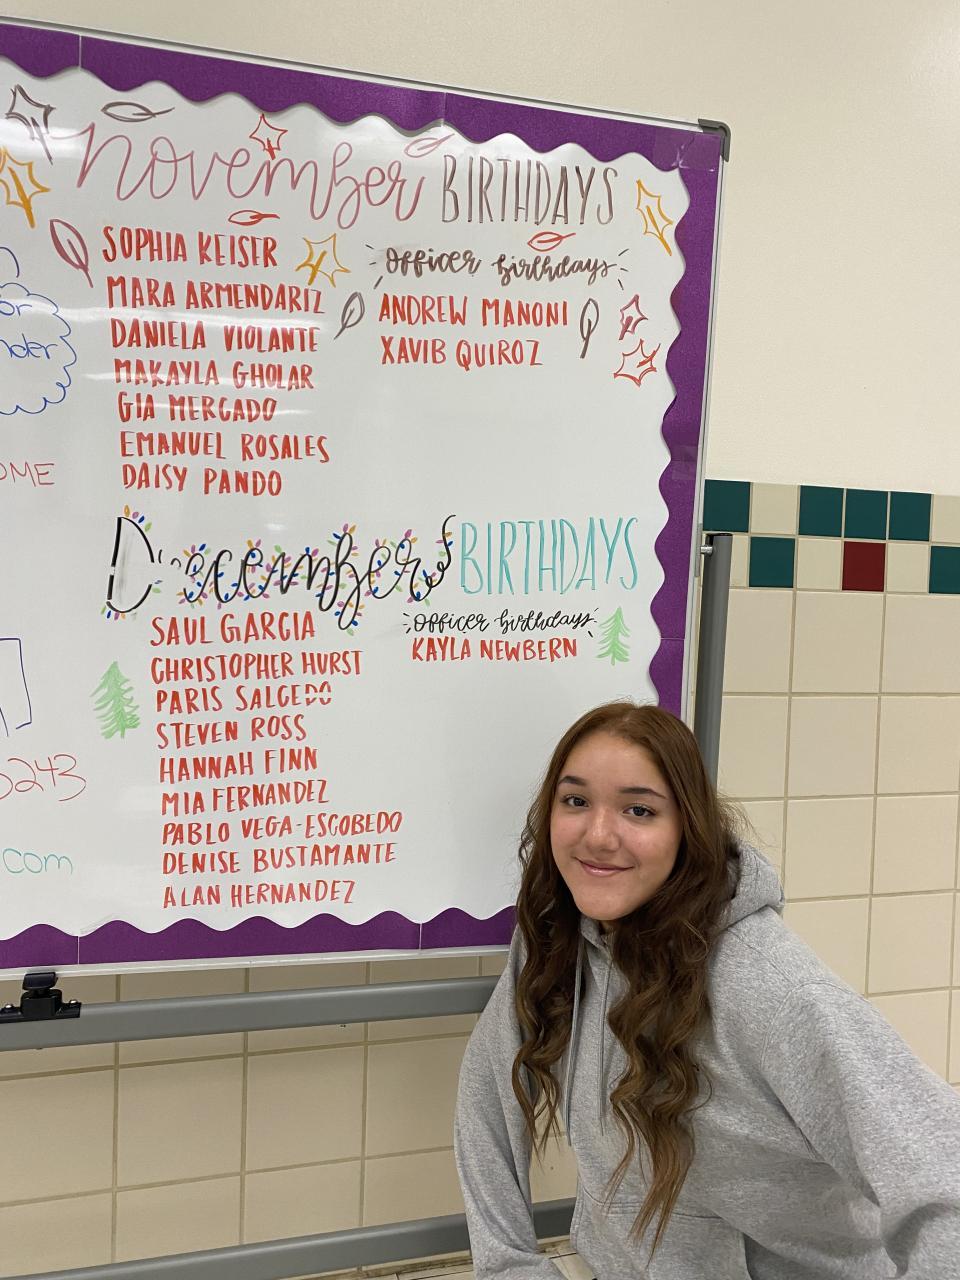 november BIRTHDAYS
SOPHIA KEISER
MARA ARMENDARIZ
DANIELA VIOLANTE
MAKAYLA GHOLAR
GIA MERCADO
EMANUEL ROSALES
DAISY PANDO
officer birthdays
ANDREW MANONI
XAVIB QUIROZ
December BIRTHDAYS
SAUL GARCIA
CHRISTOPHER HURST
PARIS SALCEDO
STEVEN ROSS
HANNAH FINN
MIA FERNANDEZ
PABLO VEGA-ESCOBEDO
DENISE BUSTAMANTE
ALAN HERNANDEZ
officer birthdays
KAYLA NEWBERN
or
nder
OME
5243
.com